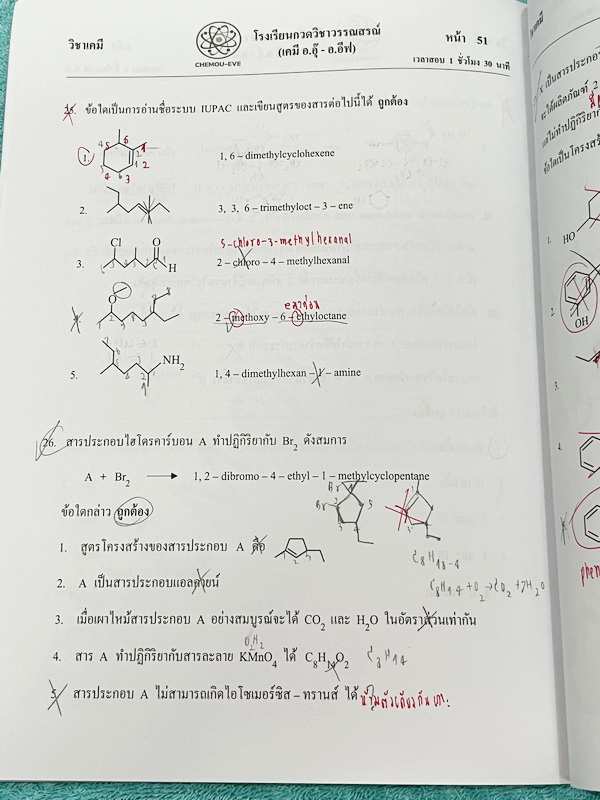 วิชาเคมี
CHEMOU-EVE
โรงเรียนกวดวิชาวรรณสรณ์
(เคมี อ.อุ๊ - อ.อีฟ)
หน้า 51
เวลาสอบ 1 ชั่วโมง 30 นาที
25. ข้อใดเป็นการอ่านชื่อระบบ IUPAC และเขียนสูตรของสารต่อไปนี้ได้ ถูกต้อง
1. 1, 6 – dimethylcyclohexene
2. 3, 3, 6 – trimethyloct – 3 – ene
5-chloro-3-methylhexanal
3. Cl O H 2 – chloro – 4 – methylhexanal
4. O 2 – methoxy – 6 – ethyloctane
5. NH2 1, 4 – dimethylhexan – 1 – amine
26. สารประกอบไฮโดรคาร์บอน A ทำปฏิกิริยากับ Br2 ดังสมการ
A + Br2 → 1, 2 – dibromo – 4 – ethyl – 1 – methylcyclopentane
ข้อใดกล่าว ถูกต้อง
Br
Br
1. สูตรโครงสร้างของสารประกอบ A คือ
2. A เป็นสารประกอบแอลคายน์
C8H14 + O2 → CO2 + 7H2O
3. เมื่อเผาไหม้สารประกอบ A อย่างสมบูรณ์จะได้ CO2 และ H2O ในอัตราส่วนเท่ากัน
4. สาร A ทำปฏิกิริยากับสารละลาย KMnO4 ได้ C8H14O2
C8H14
5. สารประกอบ A ไม่สามารถเกิดไอโซเมอร์ซิส – ทรานส์ ได้
X เป็นสารประกอบ
1.
HO
2.
OH
3.
4.